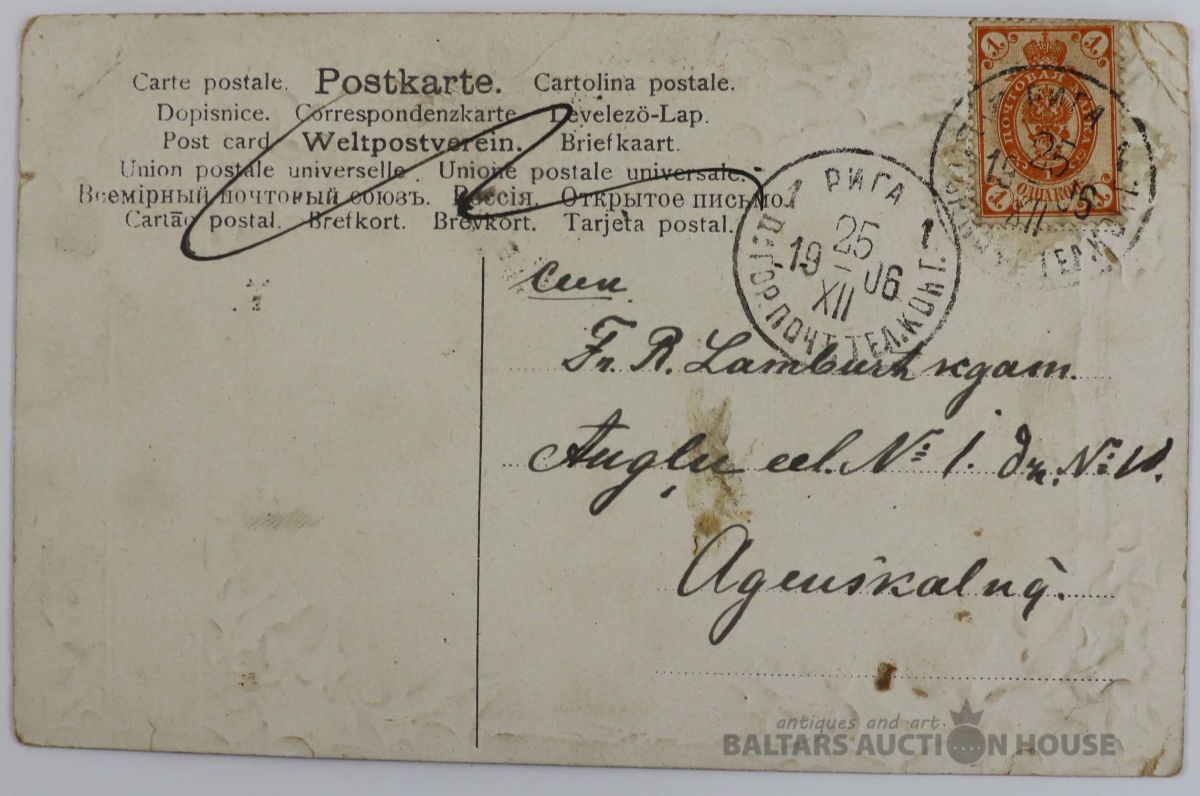 Carte postale. Postkarte. Cartolina postale.
Dopisnice. Correspondenzkarte. Levelezö-Lap.
Post card. Weltpostverein. Briefkaart.
Union postale universelle. Unione postale universale.
Всемірный почтовый союзъ. Россія. Открытое письмо.
Cartão postal. Brefkort. Brevkort. Tarjeta postal.
1 1
ПОЧТОВАЯ МАРКА
1 1
РИГА
25
19 06
XII
ТЕЛ.КОНТ.
1 РИГА 1
25
19 06
XII
ГОР.ПОЧТ.ТЕЛ.КОНТ.
Fr. R.
ul. № 1. dz. №
Agenskalnā.
antiques and art
BALTARS AUCTION HOUSE